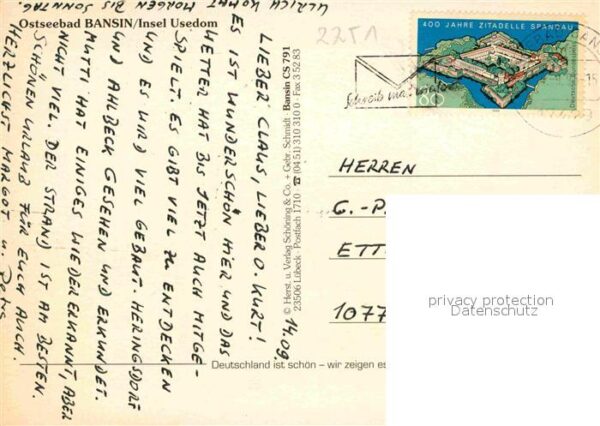 Ostseebad BANSIN/Insel Usedom
2251
14.09.
LIEBER CLAUS, LIEBER O. KURT!
ES IST WUNDERSCHÖN HIER UND DAS
WETTER HAT BIS JETZT AUCH MITGE-
SPIELT. ES GIBT VIEL ZU ENTDECKEN
UND ES WIRD VIEL GEBAUT. HERINGSDORF
UND AHLBECK GESEHEN UND ERKUNDET.
MUTTI HAT EINIGES WIEDERERKANNT, ABER
NICHT VIEL. DER STRAND IST AM BESTEN.
SCHÖNEN URLAUB FÜR EUCH AUCH.
HERZLICHST MARGOT u. Petra
ULRICH KOMMT MORGEN BIS SONNTAG.
© Herst. u. Verlag Schöning & Co. + Gebr. Schmidt · Bansin CS 791
23506 Lübeck · Postfach 1710 · ☎ (04 51) 310 310 0 · Fax 3 52 83
400 JAHRE ZITADELLE SPANDAU
80
HERREN
C.-P.
ETT
1077
Deutschland ist schön – wir zeigen es
privacy protection
Datenschutz